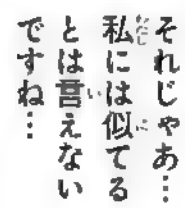 それじゃあ…
私には似てる
とは言えない
ですね…